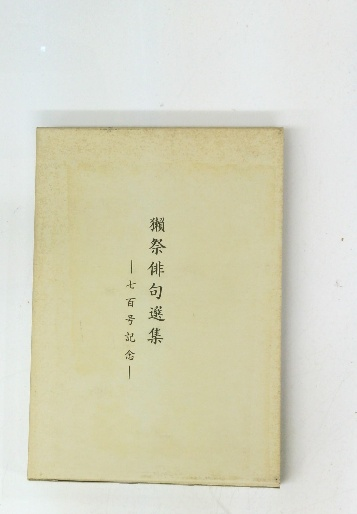 獺祭俳句選集
―七百号記念―